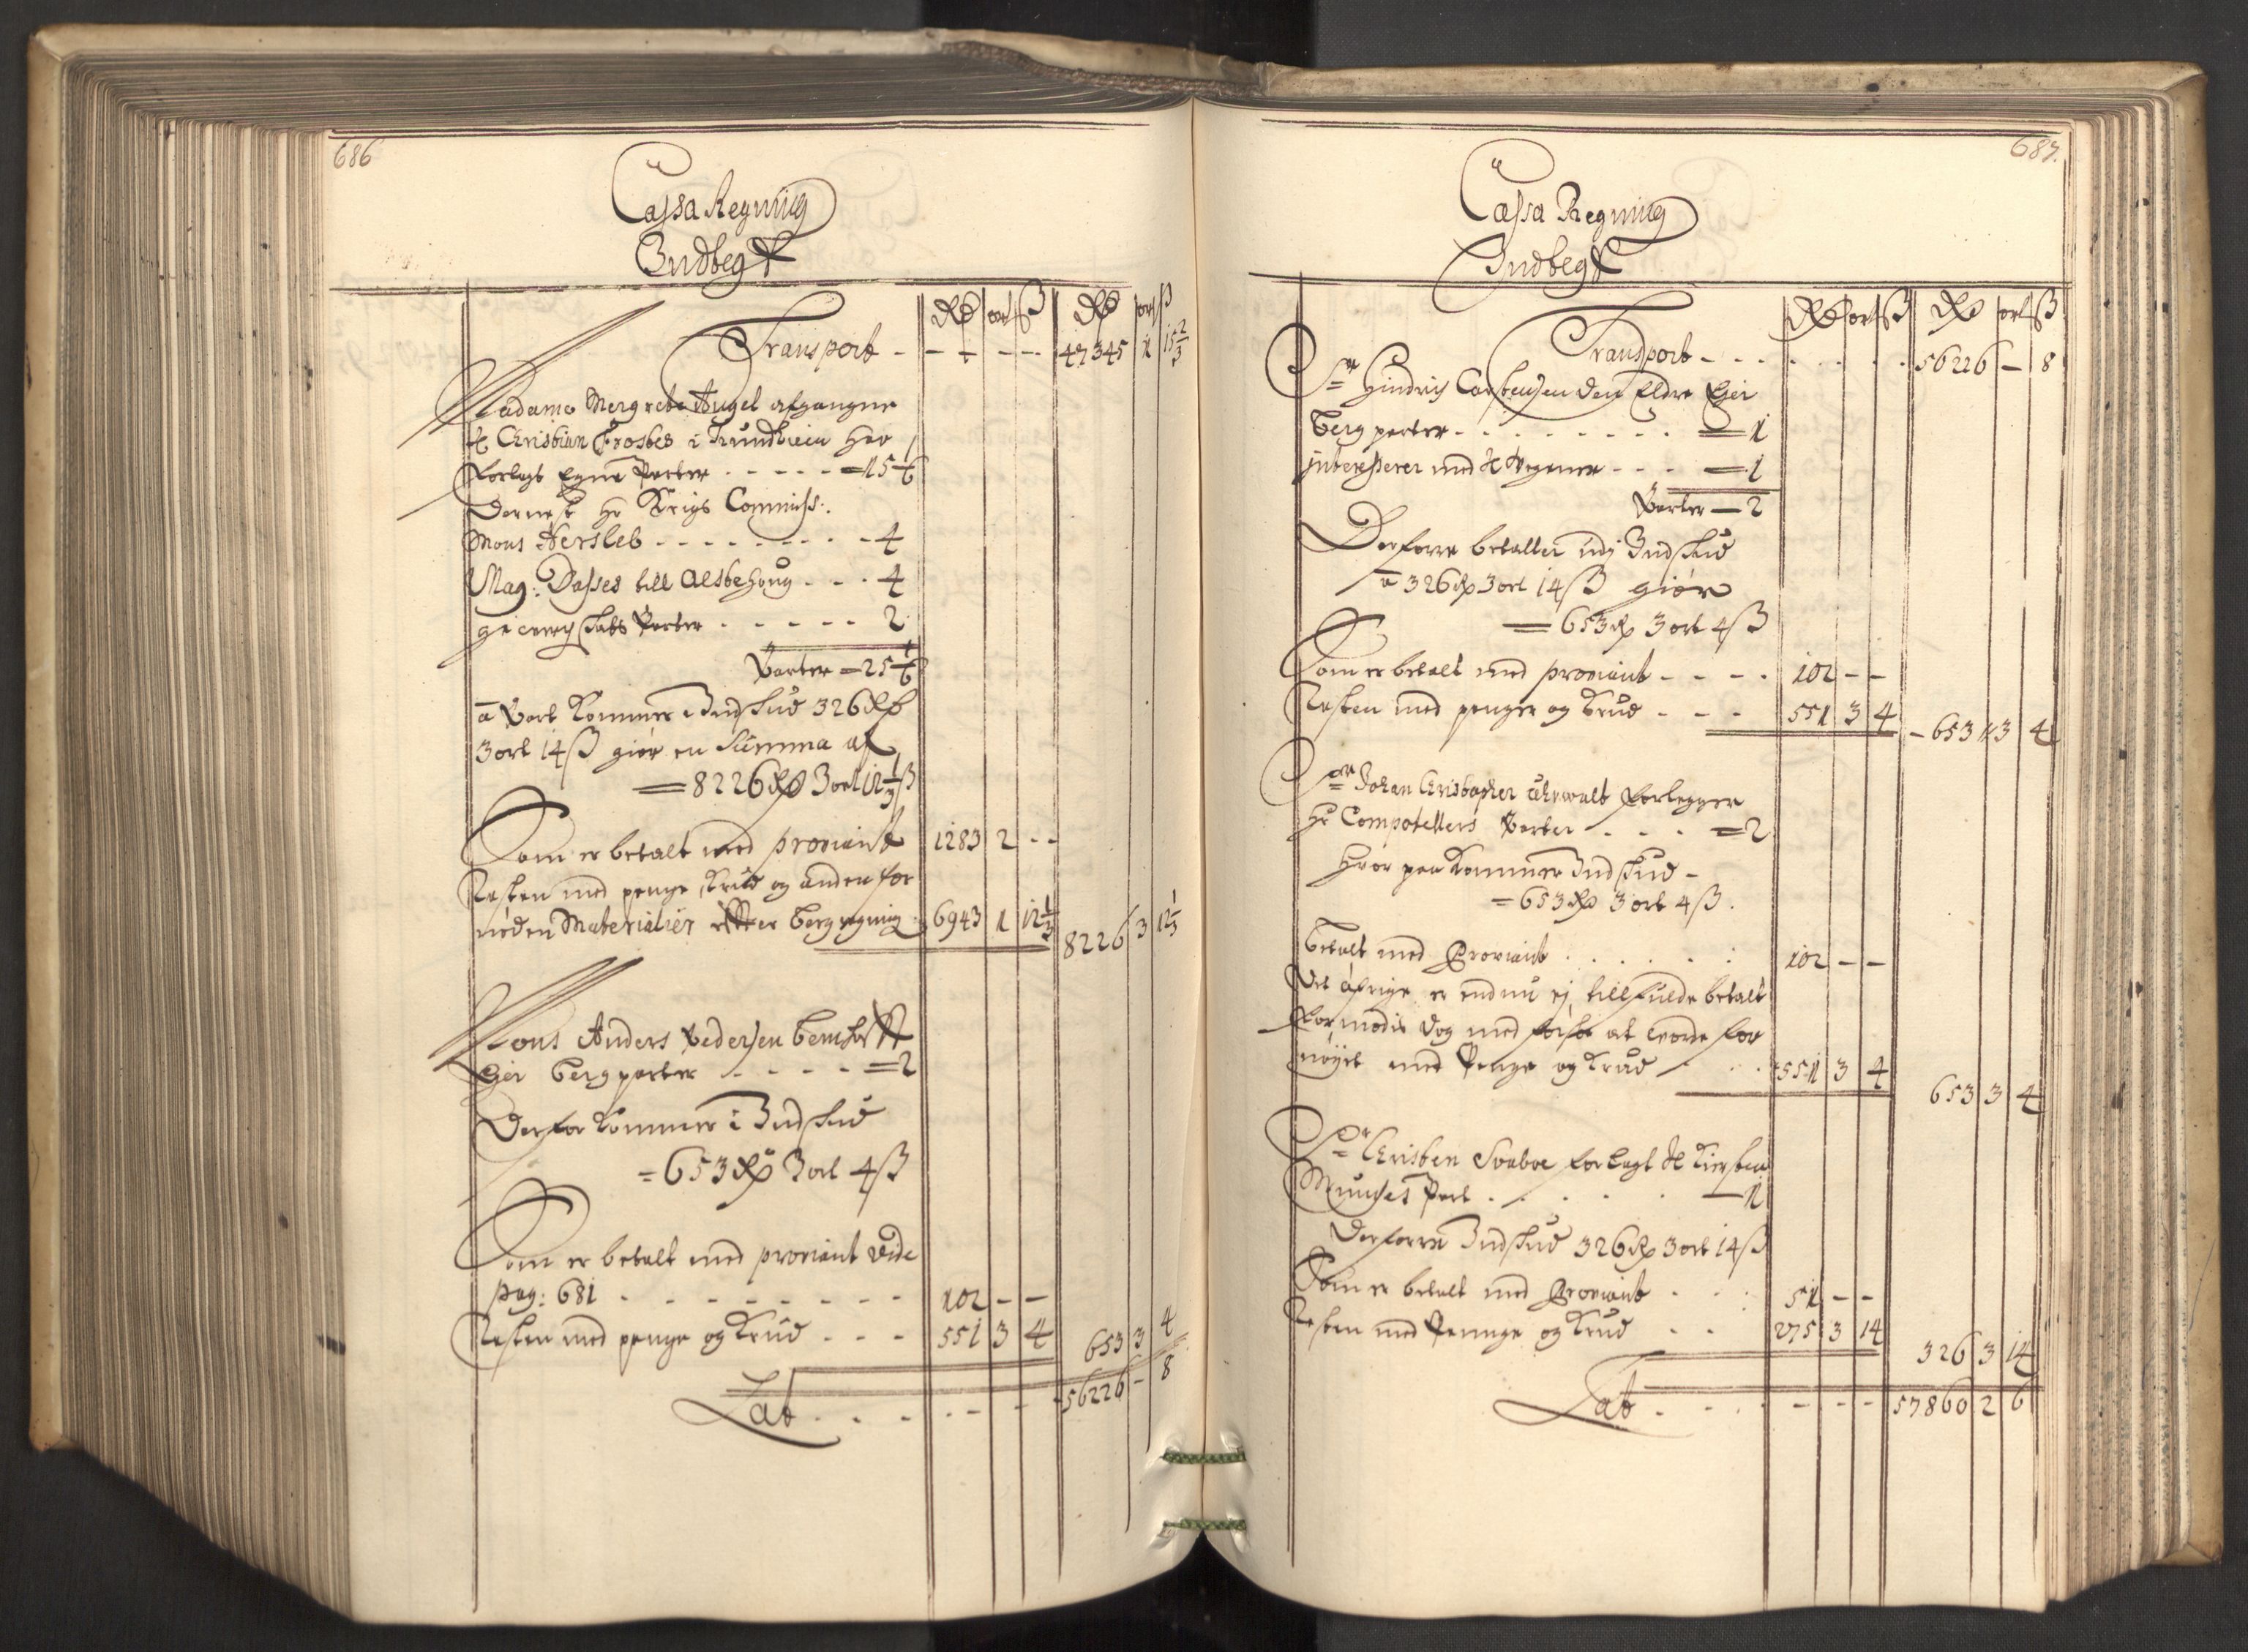 686
Cassa Regning
Indbegr
Rdr ort ß Rdr ort ß
Transport - - - - - 47345 1 15 2/3
Madame Mergrete Angel afgangne
Sl Christian Frostes i Trundhiem har
forlagt Egne Parter - - - - - = 15 1/6
Dernest hr Krigs Commiss:
Mons Hersleb - - - - - - - - - 4
Mag: Dasses till Alsbehoug - - - 4
gecompschabs Parter - - - - - 2
Parter = 25 1/6
a Part Kommer i Indskud 326 Rdr
3 ort 14 ß giør en Summa af
= 8226 Rdr 3 ort 12 1/3 ß
Som er betalt med proviant 1283 2 - -
Resten med penge, Krud og anden for
nøden Materialier efter Berg regning 6943 1 12 1/3 8226 3 12 1/3
Mons Anders Pedersen
Ejer Berg parter - - - - = 2
Derfor Kommer i Indskud
= 653 Rdr 3 ort 4 ß
Som er betalt med proviant vide
pag: 681 - - - - - - - - - 102 - -
Resten med penge og Krud - - - 551 3 4 653 3 4
Lat - - - - - - 56226 - 8
687.
Cassa Regning
Indbegr
Rdr ort ß Rdr ort ß
Transport - - - - - - - 56226 - 8
Sr Hindrich Carstensen den Eldre Ejer
Berg parter - - - - - - - - = 1
interesserer med H Wegener - - - = 1
Parter - 2
Derforre betaller udj Indskud
a 326 Rdr 3 ort 14 ß giør
= 653 Rdr 3 ort 4 ß
Som er betalt med proviant - - - - 102 - -
Resten med penger og Krud - - - 551 3 4 - 653 3 4
Sr Johan Christopher Uhrwalt forlegger
Hr Compotellers Parter - - - = 2
Hvor paa Kommer Indskud -
= 653 Rdr 3 ort 4 ß.
Betalt med Proviant - - - - - - 102 - -
Det øfrige er endnu ej till fulde betalt
formodis dog med første at worde for
nøyet med Penge og Krud - - - 551 3 4 653 3 4
Sr Christen Svaboe forlagt Sl Kirsten
Munches Part - - - - - - 1
Derforre Indskud 326 Rdr 3 ort 14 ß
Som er betalt med Proviant - - - 51 - -
Resten med Pennge og Krud - - 275 3 14 326 3 14
Lat - - - - - - - 57860 2 6